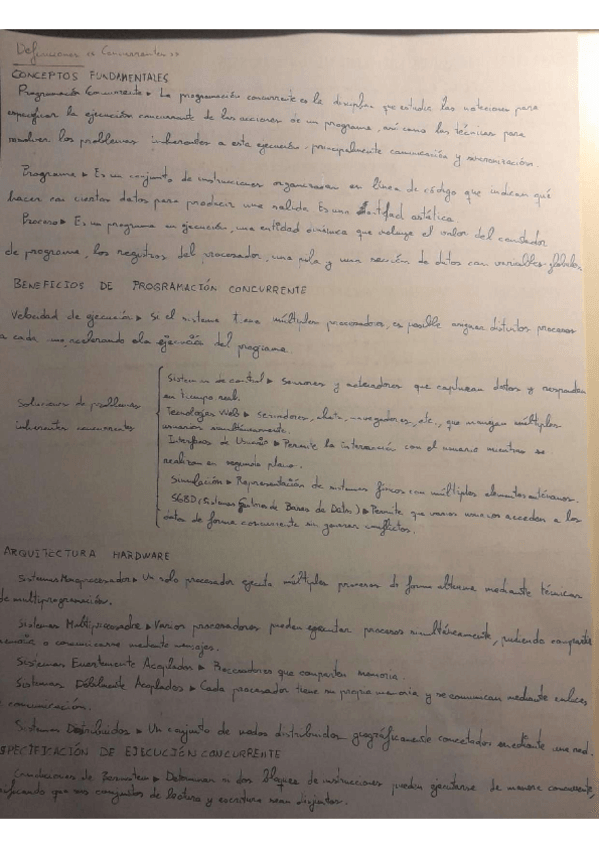 Definiciones de Concurrentes
CONCEPTOS FUNDAMENTALES
Programación Concurrente ▸ La programación concurrente es la disciplina que estudia las notaciones para
especificar la ejecución concurrente de las acciones de un programa, así como las técnicas para
resolver los problemas inherentes a esta ejecución, principalmente comunicación y sincronización.
Programa ▸ Es un conjunto de instrucciones organizadas en línea de código que indican qué
hacer con ciertos datos para producir una salida. Es una entidad estática.
Proceso ▸ Es un programa en ejecución, una entidad dinámica que incluye el valor del contador
de programa, los registros del procesador, una pila y una sección de datos con variables globales
BENEFICIOS DE PROGRAMACIÓN CONCURRENTE
Velocidad de ejecución ▸ Si el sistema tiene múltiples procesadores, es posible asignar distintos procesos
a cada uno, acelerando la ejecución del programa.
Soluciones de problemas
inherentes concurrentes
Sistemas de control ▸ Sensores y actuadores que capturan datos y responden
en tiempo real.
Tecnologías Web ▸ Servidores, chats, navegadores, etc., que manejan múltiples
usuarios simultáneamente.
Interfaces de Usuario ▸ Permite la interacción con el usuario mientras se
realizan en segundo plano.
Simulación ▸ Representación de sistemas físicos con múltiples elementos autónomos.
SGBD (Sistemas Gestores de Bases de Datos) ▸ Permite que varios usuarios accedan a los
datos de forma concurrente sin generar conflictos.
ARQUITECTURA HARDWARE
Sistemas Monoprocesador ▸ Un solo procesador ejecuta múltiples procesos de forma alterna mediante técnicas
de multiprogramación.
Sistemas Multiprocesador ▸ Varios procesadores pueden ejecutar procesos simultáneamente, pudiendo compartir
memoria o comunicarse mediante mensajes.
Sistemas Fuertemente Acoplados ▸ Procesadores que comparten memoria.
Sistemas Débilmente Acoplados ▸ Cada procesador tiene su propia memoria y se comunican mediante enlaces
comunicación.
Sistemas Distribuidos ▸ Un conjunto de nodos distribuidos geográficamente conectados mediante una red.
ESPECIFICACIÓN DE EJECUCIÓN CONCURRENTE
Condiciones de Bernstein ▸ Determinan si dos bloques de instrucciones pueden ejecutarse de manera concurrente,
verificando que sus conjuntos de lectura y escritura sean disjuntos.